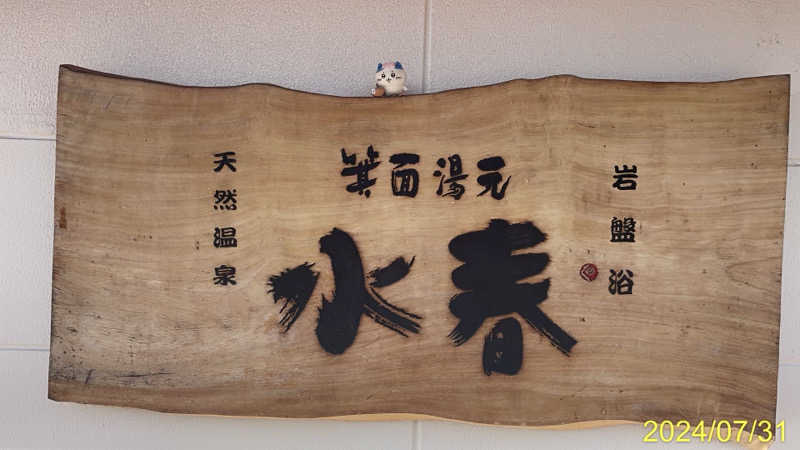 天然温泉
箕面湯元
水春
岩盤浴
2024/07/31